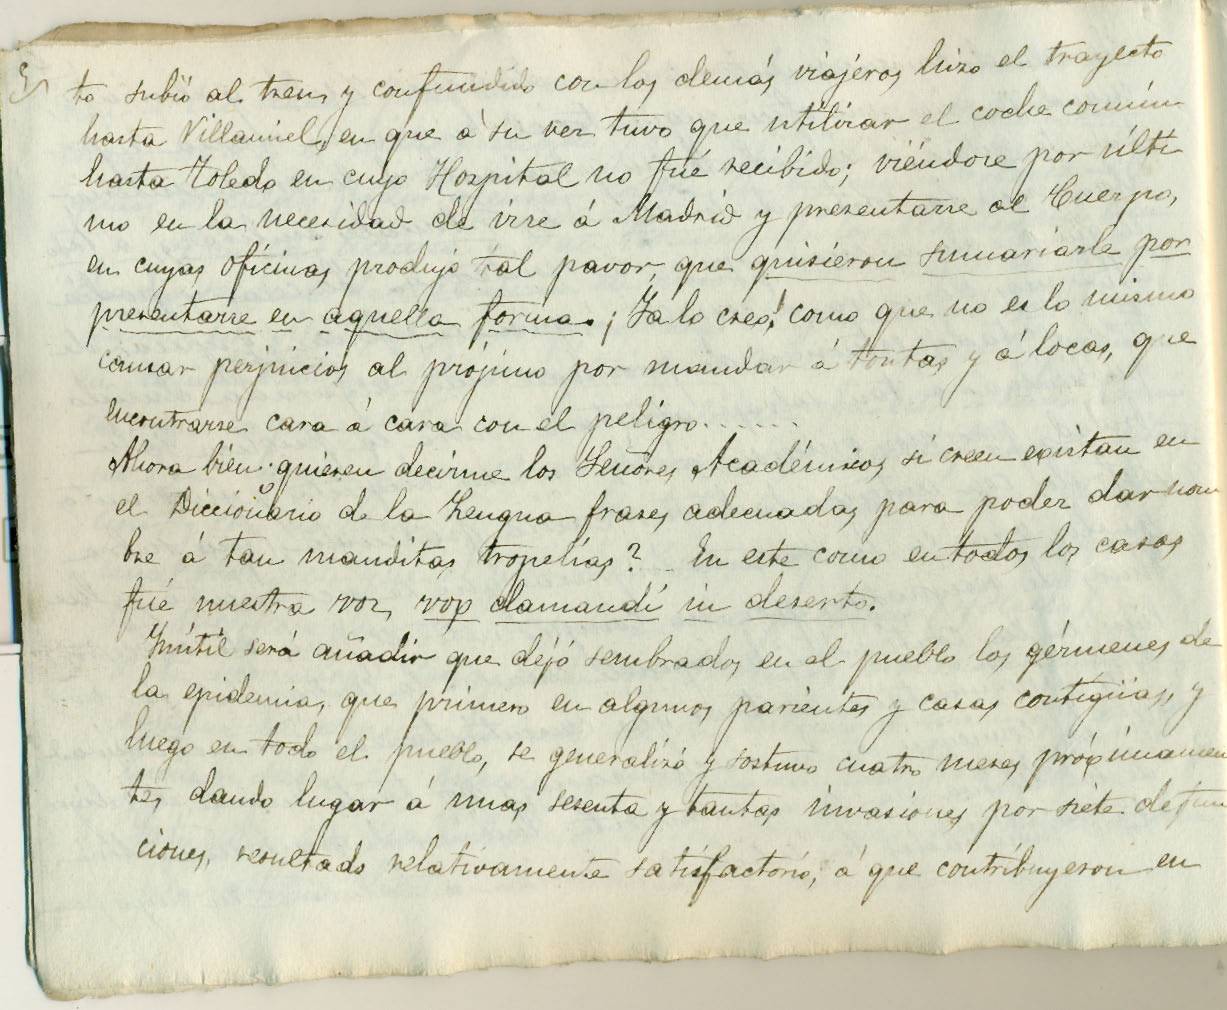 5
to subió al tren, y confundido con los demás viajeros hizo el trayecto
hasta Villamiel, en que á su vez tuvo que utilizar el coche común
hasta Toledo en cuyo Hospital no fué recibido; viéndose por últi
mo en la necesidad de irse á Madrid y presentarse al Cuerpo,
en cuyas oficinas produjo tal pavor, que quisieron sumariarle por
presentarse en aquella forma. ¡Ya lo creo! como que no es lo mismo
causar perjuicios al prójimo por mandar á tontas y á locas, que
encontrarse cara á cara con el peligro......
Ahora bien: quieren decirme los Señores Académicos, si creen existan en
el Diccionario de la Lengua frases adecuadas para poder dar nom
bre á tan manditas tropelías? En este como en todos los casos
fué nuestra voz, vox clamandi in deserto.
Inútil será añadir que dejó sembrados en el pueblo los gérmenes de
la epidemia, que primero en algunos parientes y casas contigüas, y
luego en todo el pueblo, se generalizó y sostuvo cuatro meses próximamen
te, dando lugar á unas sesenta y tantas invasiones por siete defun
ciones, resultado relativamente satisfactorio, á que contribuyeron en